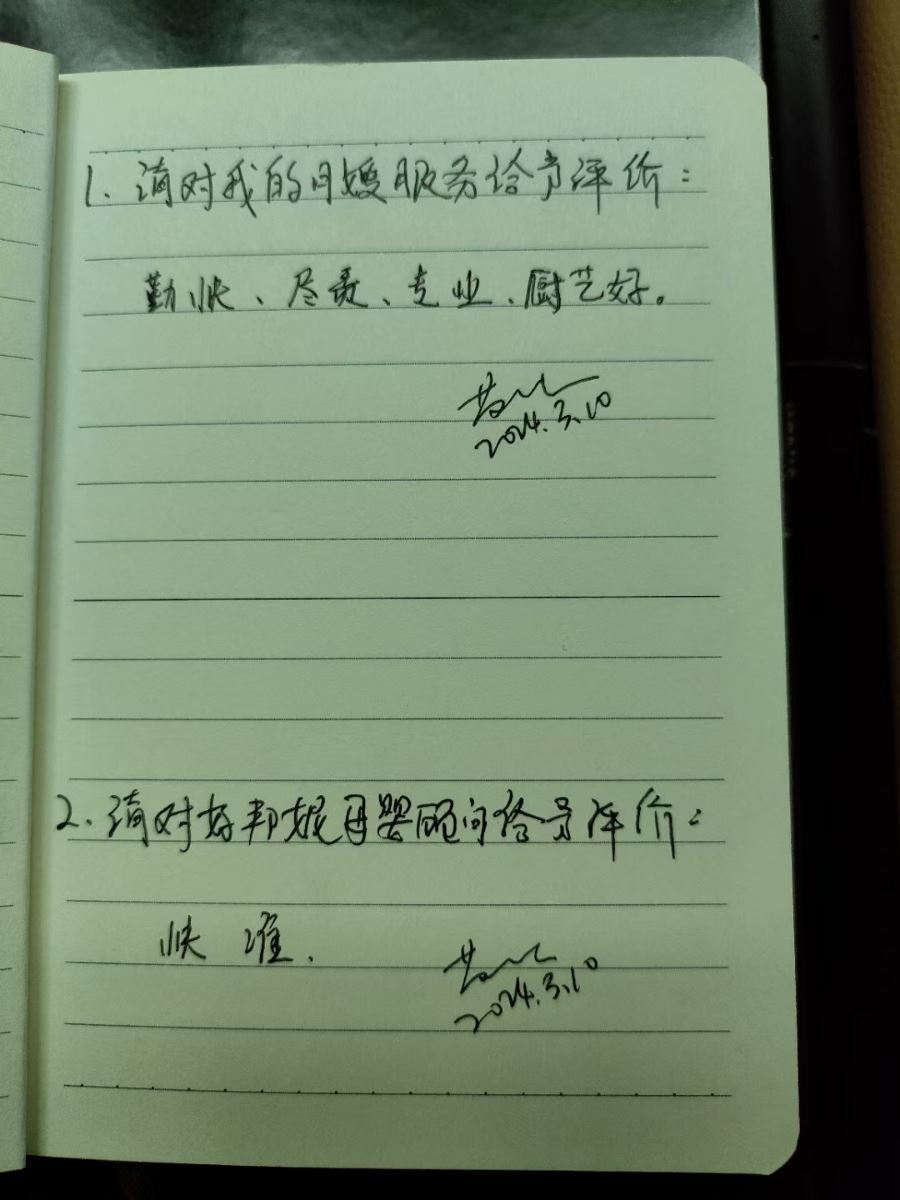 1. 请对我的月嫂服务给予评价：
勤快、尽责、专业、厨艺好。
2024.3.10
2. 请对好邦妮母婴顾问给予评价：
快 准.
2024.3.10